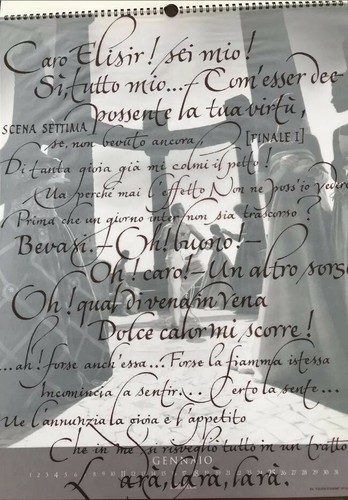 Caro Elisir! sei mio!
Sì, tutto mio... Com'esser dee
possente la tua virtù,
SCENA SETTIMA
se, non bevuto ancora, [FINALE I]
Di tanta gioia già mi colmi il petto!
Ma perchè mai l'effetto Non ne poss'io vedere
Prima che un giorno inter non sia trascorso?
Bevasi.–Oh! buono!–
Oh! caro!–Un altro sorso
Oh! qual di vena in vena
Dolce calor mi scorre!
...ah! forse anch'essa... Forse la fiamma istessa
Incomincia a sentir... Certo la sente...
Me l'annunzia la gioia e l'appetito
Che in me si risvegliò tutto in un tratto
GENNAIO
Lara, lara, lara.